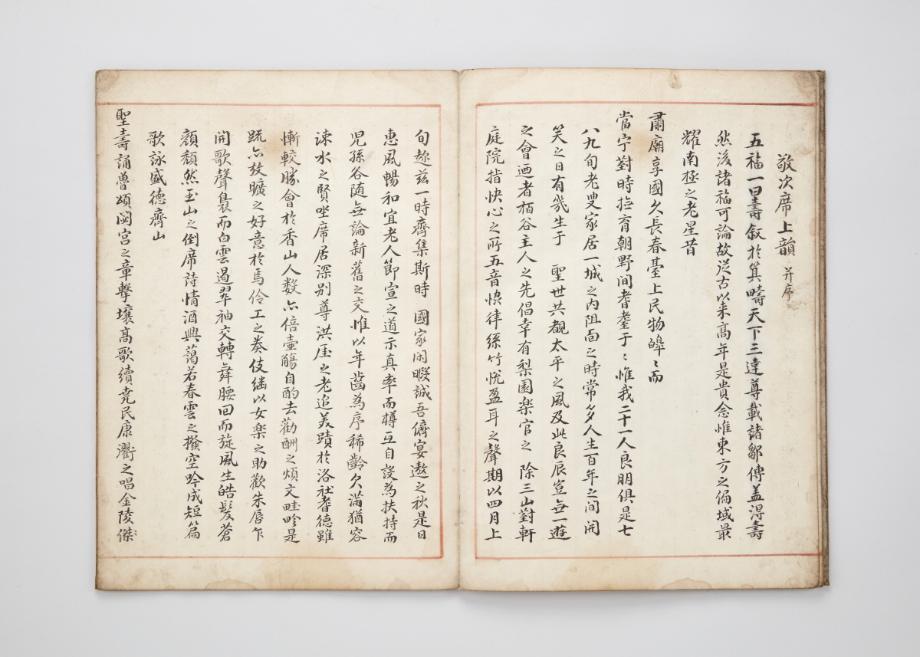 敬次席上韻 并序
五福一曰壽叙於箕疇天下三達尊載諸鄒傳盖淂壽
然後諸福可論故從古以來高年是貴念惟東方之偏域最
耀南極之老星昔
肅廟享國久長春臺上民物皥〻而
當宁對時撫育朝野間耆耋于〻惟我二十一人良朋俱是七
八九旬老叟家居一城之內阻面之時常多人生百年之間開
笑之日有幾生于 聖世共覩太平之風及此良辰豈無一遊
之會迺者栢谷主人之先倡幸有梨園樂官之 除三山對軒
庭院指快心之所五音慄律絲竹悅盈耳之聲期以四月上
旬趂玆一時齊集斯時 國家閒暇誠吾儕宴遨之秋是日
惠風暢和宜老人節宣之道示真率而樽互自設為扶持而
児孫各随無論新舊之交惟以年齒為序稀齡欠滿猶容
涑水之賢坐席居深别尊洪厓之老追美蹟於洛社耆德雖
慚較勝會於香山人数亦倍壷觴自酌去勸酬之煩文畦畛是
䟽亦放曠之好意於焉伶工之奏伎繼以女樂之助歡朱唇乍
開歌聲裊而白雲遏翠袖交轉舞腰回而旋風生皓髮蒼
顔頹然玉山之倒席詩情酒興藹若春雲之撥空吟成短篇
歌詠盛德齊山
聖壽誦魯頌閟宮之章擊壤高歌續堯民康衢之唱金陵傑